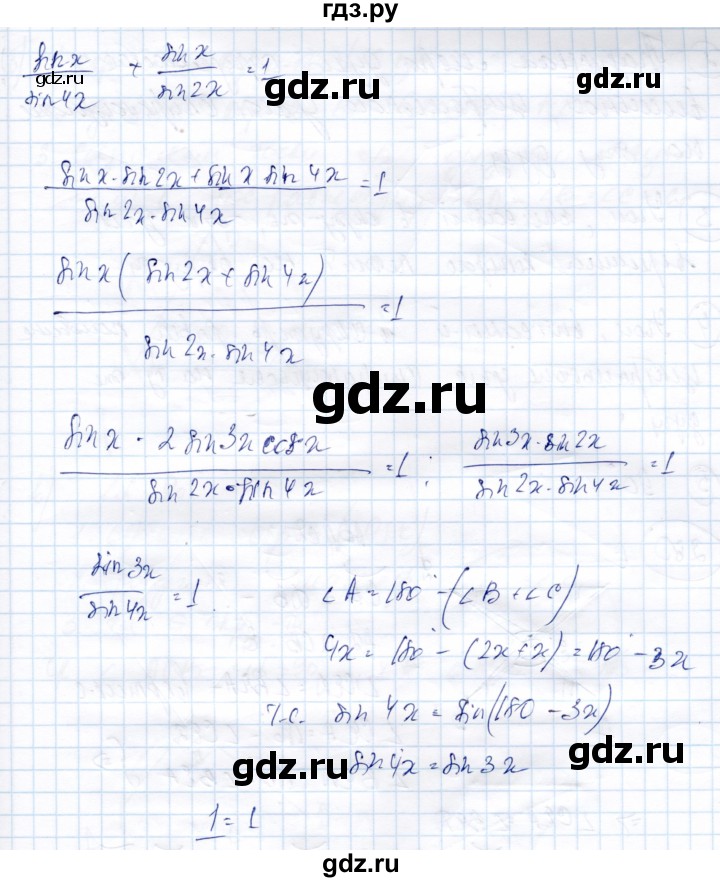 гдз.ру
sin x / sin 4x + sin x / sin 2x = 1
gdz.ru gdz.ru gdz.ru
(sin x · sin 2x + sin x sin 4x) / (sin 2x · sin 4x) = 1
gdz.ru gdz.ru
sin x (sin 2x + sin 4x) / (sin 2x · sin 4x) = 1
gdz.ru
gdz.ru
(sin x · 2 sin 3x cos x) / (sin 2x · sin 4x) = 1 ; (sin 3x · sin 2x) / (sin 2x · sin 4x) = 1
gdz.ru gdz.ru
sin 3x / sin 4x = 1. ∠A = 180° - (∠B + ∠C)
gdz.ru
4x = 180° - (2x + x) = 180° - 3x
gdz.ru
т.с. sin 4x = sin(180 - 3x)
gdz.ru gdz.ru
sin 4x = sin 3x
1 = 1
gdz.ru
gdz.ru